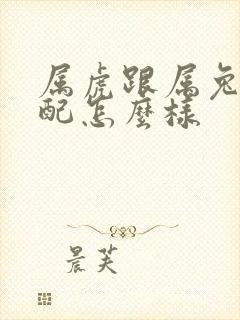 属虎跟属兔
配怎麼樣
晨芙